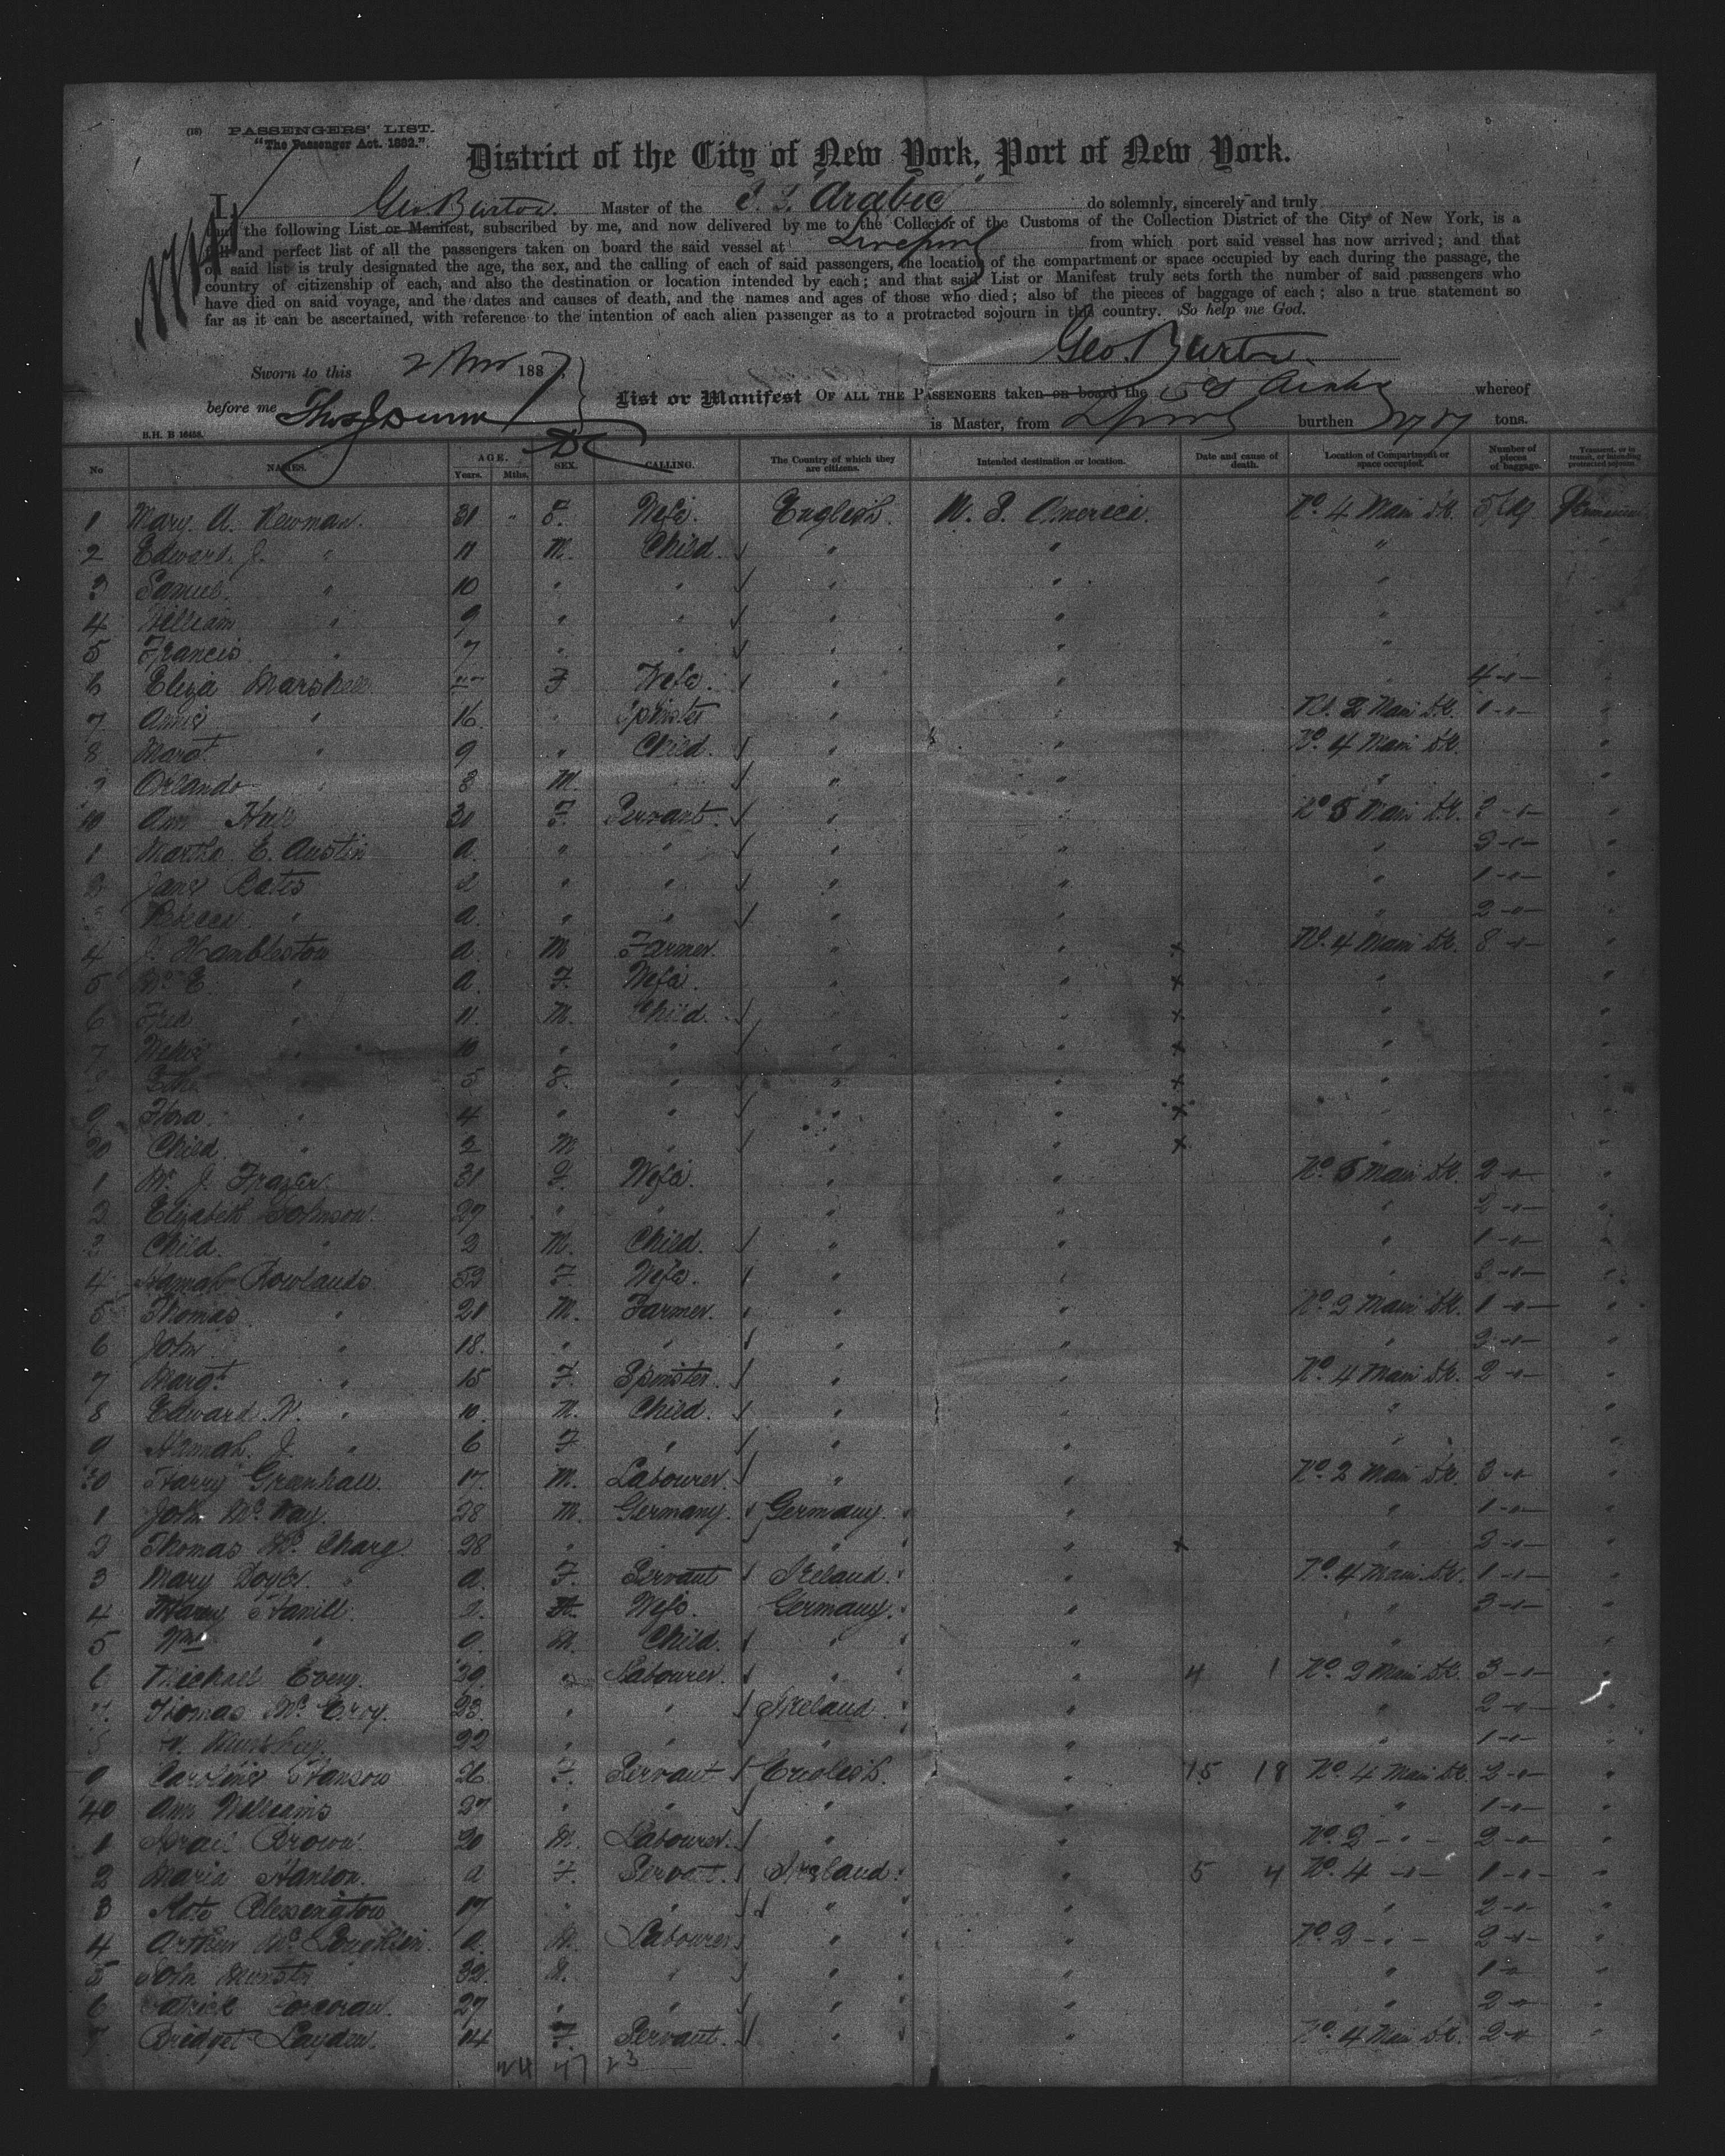 (18) PASSENGERS' LIST.
"The Passenger Act. 1882."
District of the City of New York, Port of New York.
I, Geo. Burton. Master of the S. S. Arabic do solemnly, sincerely and truly
that the following List or Manifest, subscribed by me, and now delivered by me to the Collector of the Customs of the Collection District of the City of New York, is a
full and perfect list of all the passengers taken on board the said vessel at Liverpool from which port said vessel has now arrived; and that
on said list is truly designated the age, the sex, and the calling of each of said passengers, the location of the compartment or space occupied by each during the passage, the
country of citizenship of each, and also the destination or location intended by each; and that said List or Manifest truly sets forth the number of said passengers who
have died on said voyage, and the dates and causes of death, and the names and ages of those who died; also of the pieces of baggage of each; also a true statement so
far as it can be ascertained, with reference to the intention of each alien passenger as to a protracted sojourn in this country. So help me God.
Geo. Burton.
Sworn to this 2 Nov 1887,
before me
List or Manifest OF ALL THE PASSENGERS taken on board the S S Arabic whereof
is Master, from L'pool burthen 2787 tons.
B.H. B 16458.
No NAMES. AGE. Years. Mths. SEX. CALLING. The Country of which they are citizens. Intended destination or location. Date and cause of death. Location of Compartment or space occupied. Number of pieces of baggage. Transient, or in transit, or intending protracted sojourn.
1 Mary A. Newman. 31 " F. Wife. English. U. S. America. No. 4 Main Dk. 5 Pkg Permanent
2 Edward J. " 11 M. Child. " " " "
3 Samuel. " 10 " " " " " "
4 William " 9 " " " " " "
5 Francis. " 7 " " " " "
6 Eliza Marshall F Wife. " " 4 -"-
7 Annie " 16 " Spinster " " No. 2 Main Dk. 1 -"- "
8 Margt. " 9 " Child. " " No. 4 Main Dk. "
9 Orlando " 8 M. " " " "
10 Ann 30 F. Servant. " " No 5 Main Dk. 2 -"- "
1 Martha E. Austin a. " " " " " 3 -"- "
2 Jane Bates " " " " " 1 -"- "
3 Rebecca " a. " " " " " 2 -"- "
4 J. Hambleston a. M Farmer. " " x No. 4 Main Dk. 8 -"- "
5 " a. F. Wife. " " x " "
6 Fred " 11. M. Child. " " x " "
7 " 10 " " " " x " "
8 " 5 F. " " " x " "
9 Flora " 4 " " " " x " "
20 Child. " 2 M " " " x " "
1 J. Frazer. 31 F. Wife. " " No. 5 Main Dk. 2 -"- "
2 Elizabeth Johnson. 27 " " " " " 2 -"- "
3 Child. " 2 M. Child. " " " 1 -"- "
4 Hannah Rowlands 52 F. Wife. " " " "
5 Thomas " 21 M. Farmer. " " No. 2 Main Dk. 1 -"- "
6 John " 18. " " " " " 3 -"- "
7 Margt. " 15 F. Spinster. " " No. 4 Main Dk. 2 -"- "
8 Edward W. " 10. M. Child. " " " "
9 Hannah J. " 6 F " " " " "
30 Harry Granhall. 17. M. Labourer. " " No. 2 Main Dk. 3 -"- "
1 John McKay. 28 M. Germany. Germany. " " 1 -"- "
2 Thomas 28 " " " " x " 2 -"- "
3 Mary Doyle. a. F. Servant Ireland. " No. 4 Main Dk. 1 -"- "
4 Hamill. Wife. Germany. " " 3 -"- "
5 Wm " M. Child. " " " "
6 Michall 29. " Labourer. " " 4 1 No. 2 Main Dk. 3 -"- "
7 Thomas 23. " " Ireland " " 2 -"- "
8 22 " " " " " 1 -"- "
9 Caroline Hanson 26. F. Servant English. " 15 18 No. 4 Main Dk. 2 -"- "
40 Ann Williams 27 " " " " " 1 -"- "
1 Brown. 20 M. Labourer. " " No. 2 -"- 2 -"- "
2 Maria Hanlon. a F. Servant. Ireland. " 5 4 No. 4 -"- 1 -"- "
3 Kate Blessington 17 " " " " " 2 -"- "
4 Arthur McLoughlin. a. M. Labourer " " No. 2 -"- 2 -"- "
5 John 32. M. " " " " 1 -"- "
6 Patrick Corcoran. 27 " " " " " 2 -"- "
7 Bridget Layden. 14 F. Servant. " " No. 4 Main Dk. 2 -"- "
24 47 23